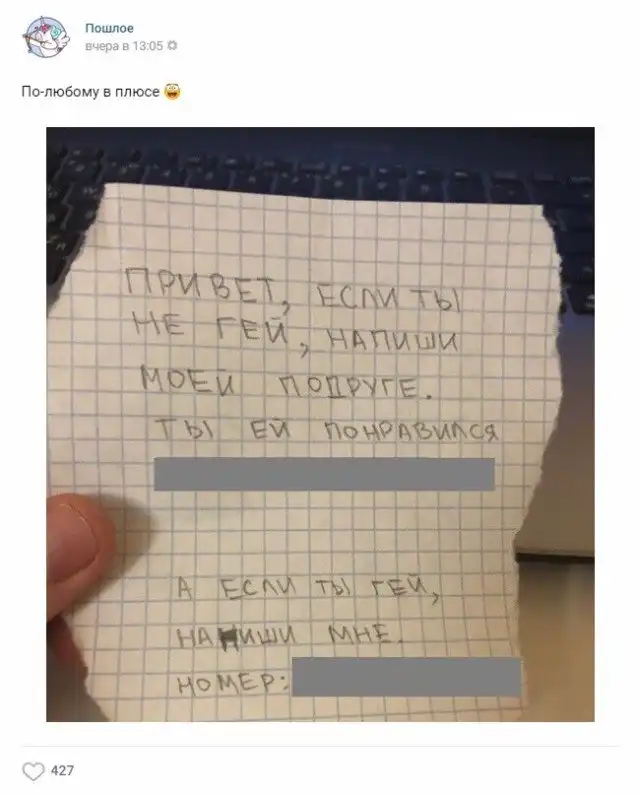 Пошлое
вчера в 13:05
По-любому в плюсе
ПРИВЕТ, ЕСЛИ ТЫ
НЕ ГЕЙ, НАПИШИ
МОЕЙ ПОДРУГЕ.
ТЫ ЕЙ ПОНРАВИЛСЯ
А ЕСЛИ ТЫ ГЕЙ,
НАПИШИ МНЕ.
НОМЕР:
427